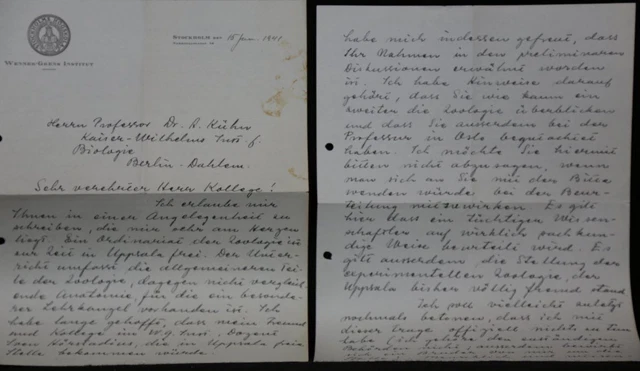 WENNER-GRENS INSTITUT
STOCKHOLM den 15 Jan. 1941
Herrn Professor Dr. A. Kühn
Kaiser-Wilhelms Inst f.
Biologie
Berlin-Dahlem.
Sehr verehrter Herr Kollege!
Ich erlaube mir
Ihnen in einer Angelegenheit zu
schreiben, die mir sehr am Herzen
liegt. Ein Ordinariat der Zoologie ist
zur Zeit in Uppsala frei. Der Unter-
richt umfasst die allgemeineren Tei-
le der Zoologie, dagegen nicht vergleich-
ende Anatomie, für die ein besonde-
rer Lehrkanzel vorhanden ist. Ich
habe lange gehofft, dass mein Freund
und Kollege in W-G Inst., Dozent
Sven Hörstadius, die in Uppsala freie
Stelle bekommen würde.
habe mich indessen gefreut, dass
Ihr Nahmen in den preliminären
Diskussionen erwähnt worden
ist. Ich habe Hinweise darauf
gehört, dass Sie wie kaum ein
zweiter die Zoologie überblicken
und dass Sie ausserdem bei der
Professur in Oslo begutachtet
haben. Ich möchte Sie hiermit
bitten nicht abzusagen, wenn
man sich an Sie mit der Bitte
wenden würde bei der Beur-
teilung mitzuwirken. Es gilt
hier dass ein tüchtiger Wissen-
schaftler auf wirklich sachkun-
dige Weise beurteilt wird. Es
gilt ausserdem, die Stellung der
experimentellen Zoologie, der
Uppsala bisher völlig fremd stand
Ich soll vielleicht zuletzt
nochmals betonen, dass ich mit
dieser Frage offiziell nichts zu tun
habe (ich gehöre den zuständigen
Behörden nicht, ausserdem